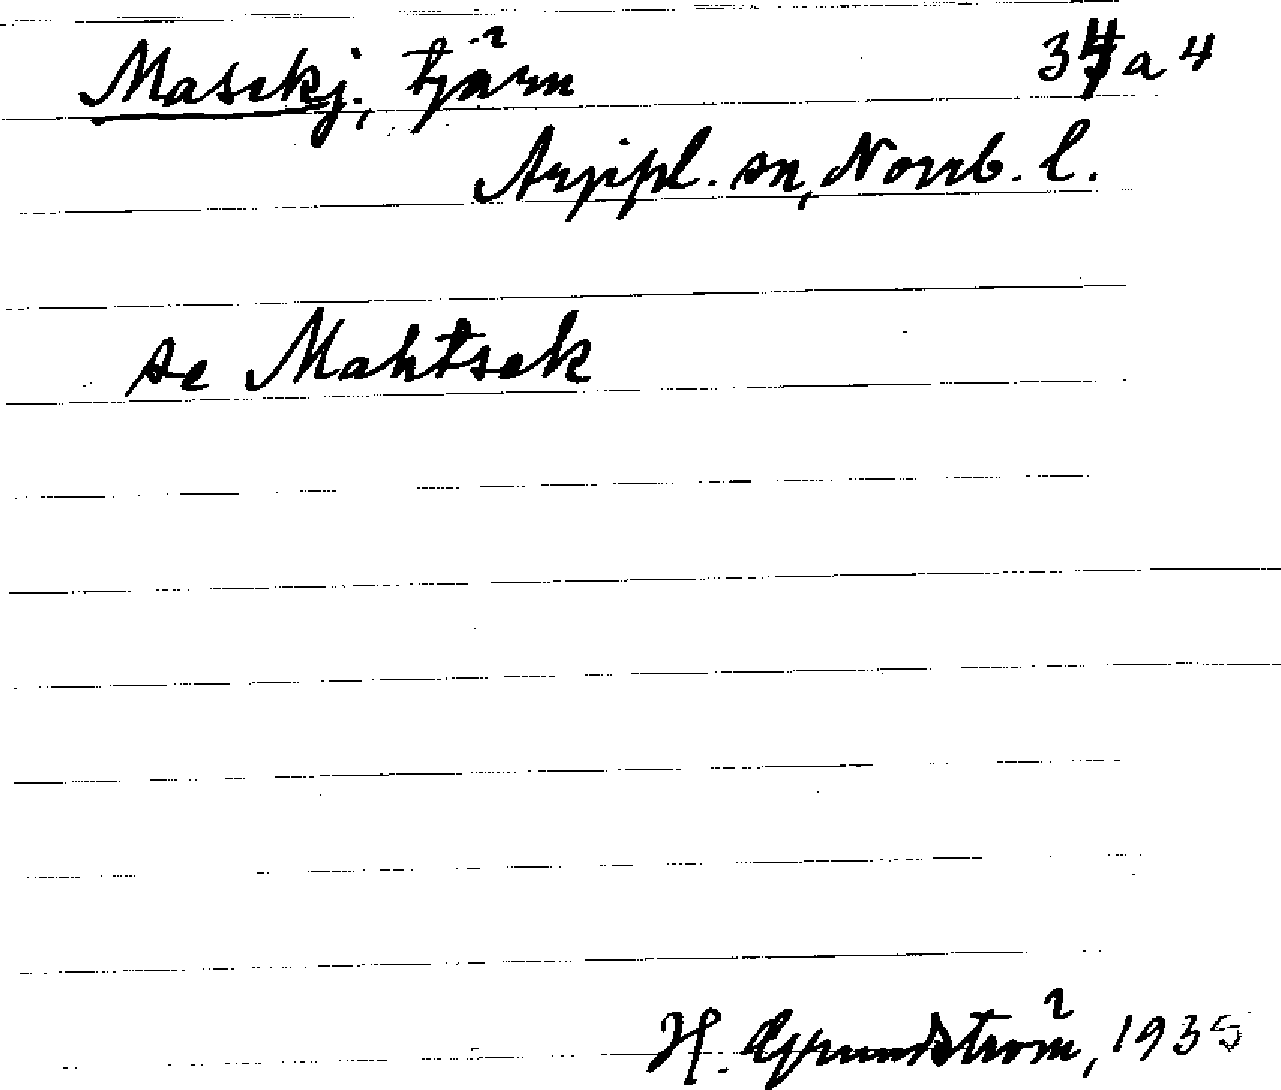 Masekj., tjärn 34 a 4
Arjepl. sn, Norrb. l.
se Mahtsek
H. Grundström, 1935